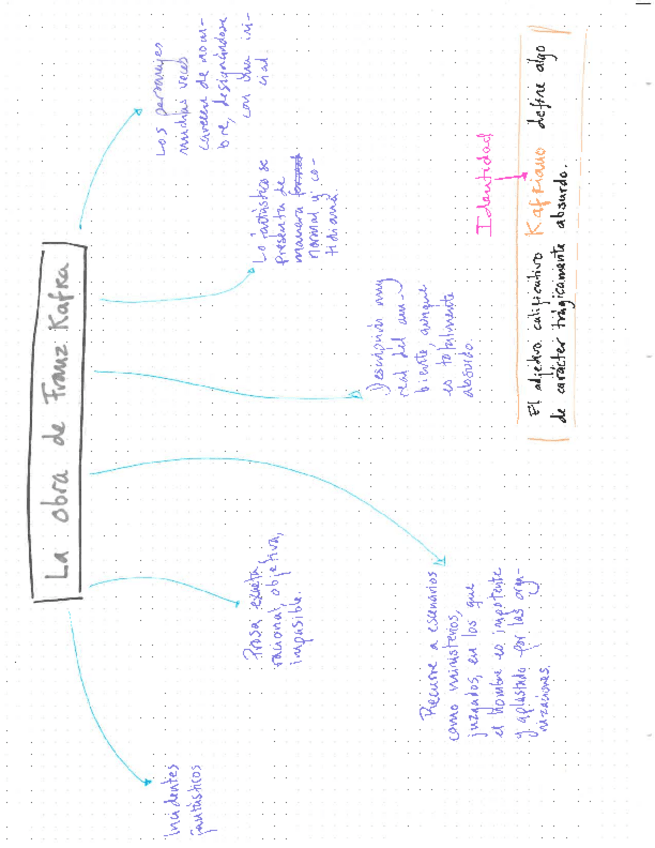 La obra de Franz Kafka
Incidentes
fantásticos
Prosa escueta,
racional, objetiva,
impasible.
Recurre a escenarios
como ministerios,
juzgados, en los que
el hombre es impotente
y aplastado por las orga-
nizaciones.
Descripción muy
real del am-
biente, aunque
es totalmente
absurdo.
Lo fantástico se
presenta de
manera
normal y co-
tidiana.
Los personajes
muchas veces
carecen de nom-
bre, designándose
con una ini-
cial.
Identidad
El adjetivo calificativo Kafkiano define algo
de carácter trágicamente absurdo.